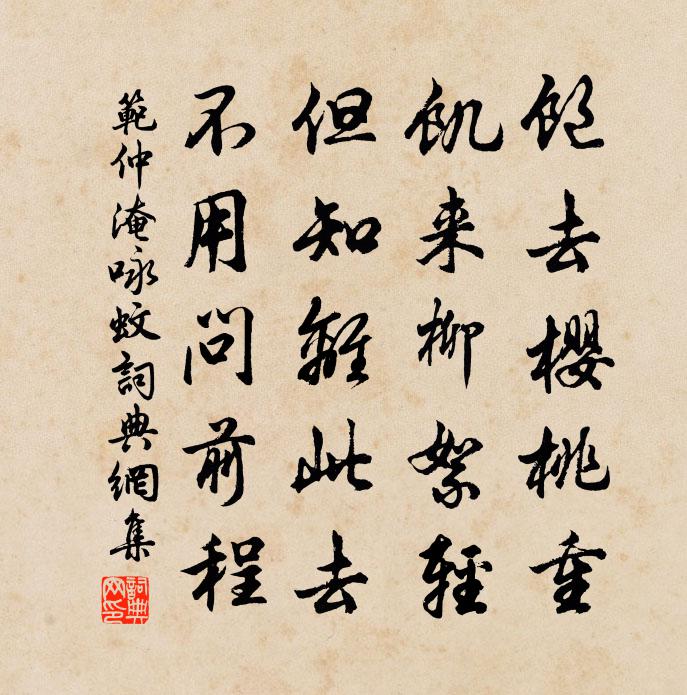 飽去櫻桃重
飢来柳絮輕
但知離此去
不用問前程
範仲淹咏蚊詞典網集
詞典
网印